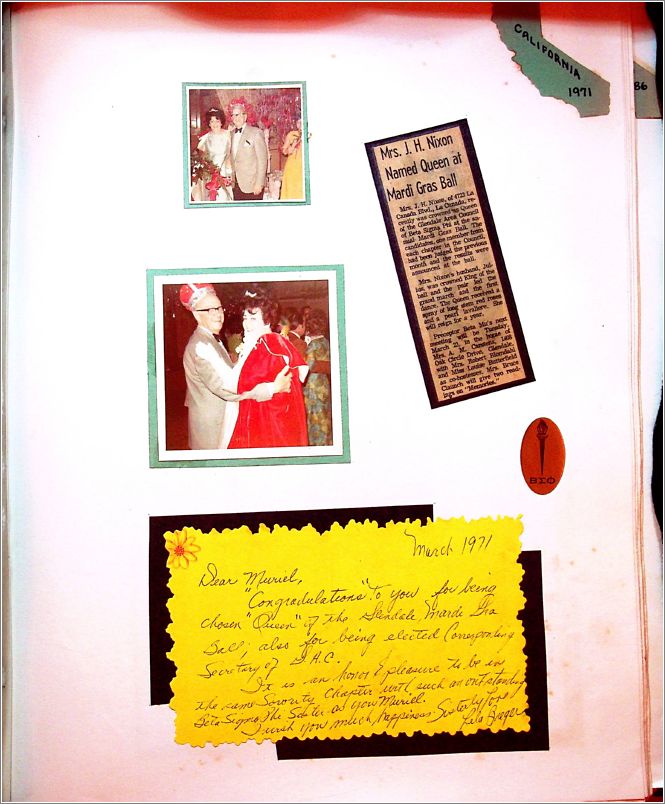 CALIFORNIA
1971
86
Mrs. J. H. Nixon
Named Queen at
Mardi Gras Ball
Mrs. J. H. Nixon, of 4723 La
Canada Blvd., La Canada, re-
cently was crowned as Queen
of the Glendale Area Council
of Beta Sigma Phi at the an-
nual Mardi Gras Ball. The
candidates, one member from
each chapter in the Council,
had been judged the previous
month and the results were
announced at the ball.
Mrs. Nixon's husband, Jul-
ian, was crowned King of the
ball and the pair led the
grand march and the first
dance. The Queen received a
spray of long stem red roses
and a pearl lavaliere. She
will reign for a year.
Preceptor Beta Mu's next
meeting will be Tuesday,
March 23, in the home of
Mrs. A. M. 1408
Oak Circle Drive, Glendale,
with Mrs. Robert Blomdahl
and Miss Louise Butterfield
as co-hostesses. Mrs. Bruce
will give two read-
ings on "Memories."
ΒΣΦ
March 1971
Dear Muriel,
"Congradulations" to you for being
chosen "Queen" of the Glendale Mardi Gra
Ball, also for being elected Corresponding
Secretary of G.A.C.
It is an honor & pleasure to be in
the same Sorority Chapter with such an outstanding
Beta Sigma Phi Sister as you Muriel.
I wish you much happiness. Sisterly love
Lela